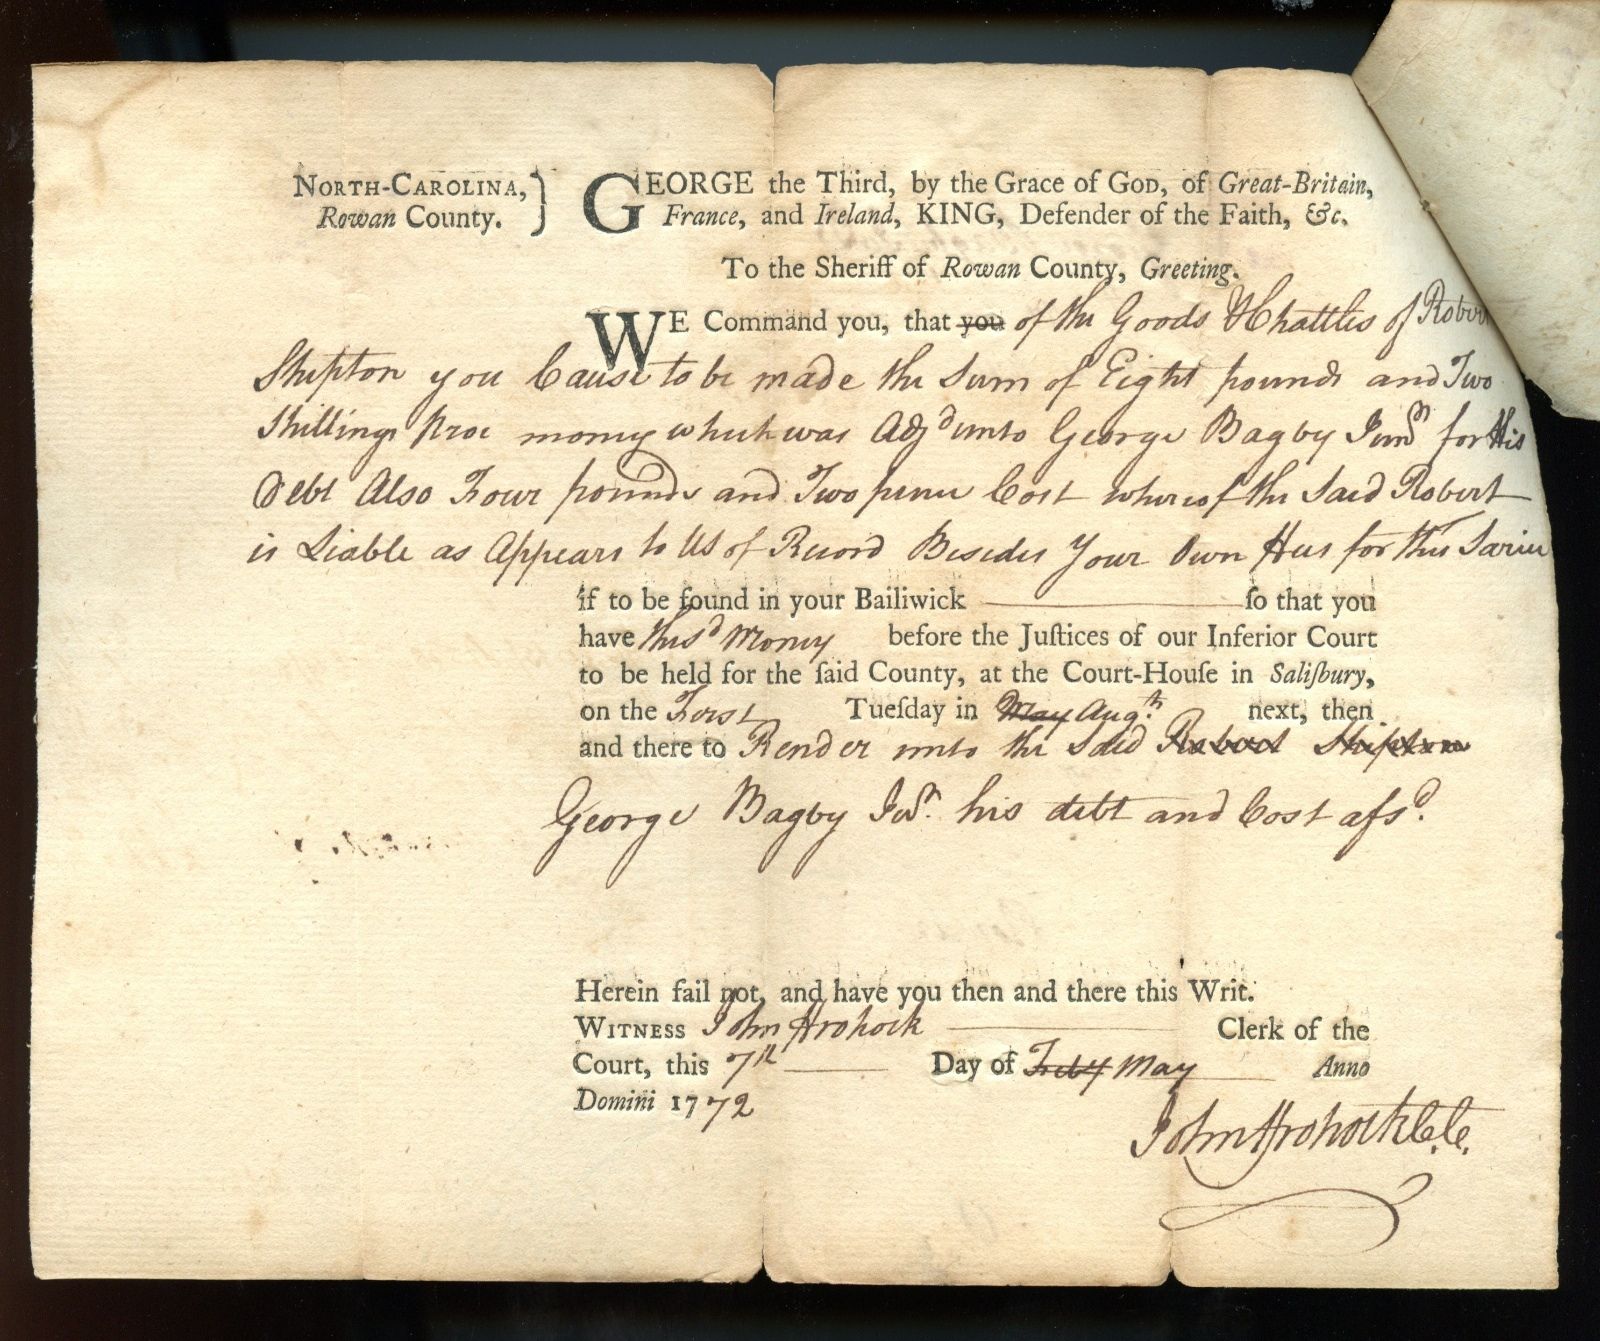 NORTH-CAROLINA, Rowan County. } GEORGE the Third, by the Grace of GOD, of Great-Britain,
France, and Ireland, KING, Defender of the Faith, &c.
To the Sheriff of Rowan County, Greeting.
WE Command you, that you of the Goods & Chattles of Robert
Shipton you Cause to be made the Sum of Eight pounds and Two
Shillings Proc money which was Adjd unto George Bagby Junr for His
Debt Also Four pounds and Two pence Cost whereof the Said Robert
is Liable as Appears to Us of Record Besides Your Own Fees for this Service
if to be found in your Bailiwick ſo that you
have this sd Money before the Juſtices of our Inferior Court
to be held for the ſaid County, at the Court-Houſe in Saliſbury,
on the First Tueſday in May Augt. next, then
and there to Render unto the Said Robert Shipton
George Bagby Junr. his debt and Cost afsd.
Herein fail not, and have you then and there this Writ.
WITNESS John Frohock Clerk of the
Court, this 7th Day of Feby May Anno
Domini 1772
John Frohock C.C.